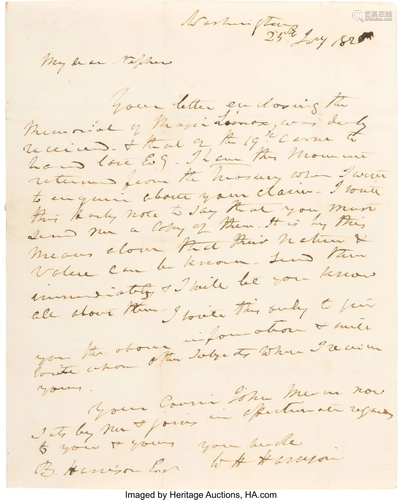 Washington
25th Jany 182
My dear Nephew
Your letter enclosing the
Memorial of Major Lomax, was duly
received. & that of the 19th came to
hand last Eg. I am this moment
returned from the Treasury whar I went
to enquire about your claims. I write
this hasty note to say that you must
send me a copy of them. It is by this
means alone that their nature &
value can be known. Send them
immediately & I will let you know
all about them. I write this only to give
you the above information & will
write upon other subjects when I receive
yours.
Your Cousin John Me now
sits by me & joins in affectionate regards
to you & yours your uncle
B. Harrison Esqr W H Harrison
Imaged by Heritage Auctions, HA.com